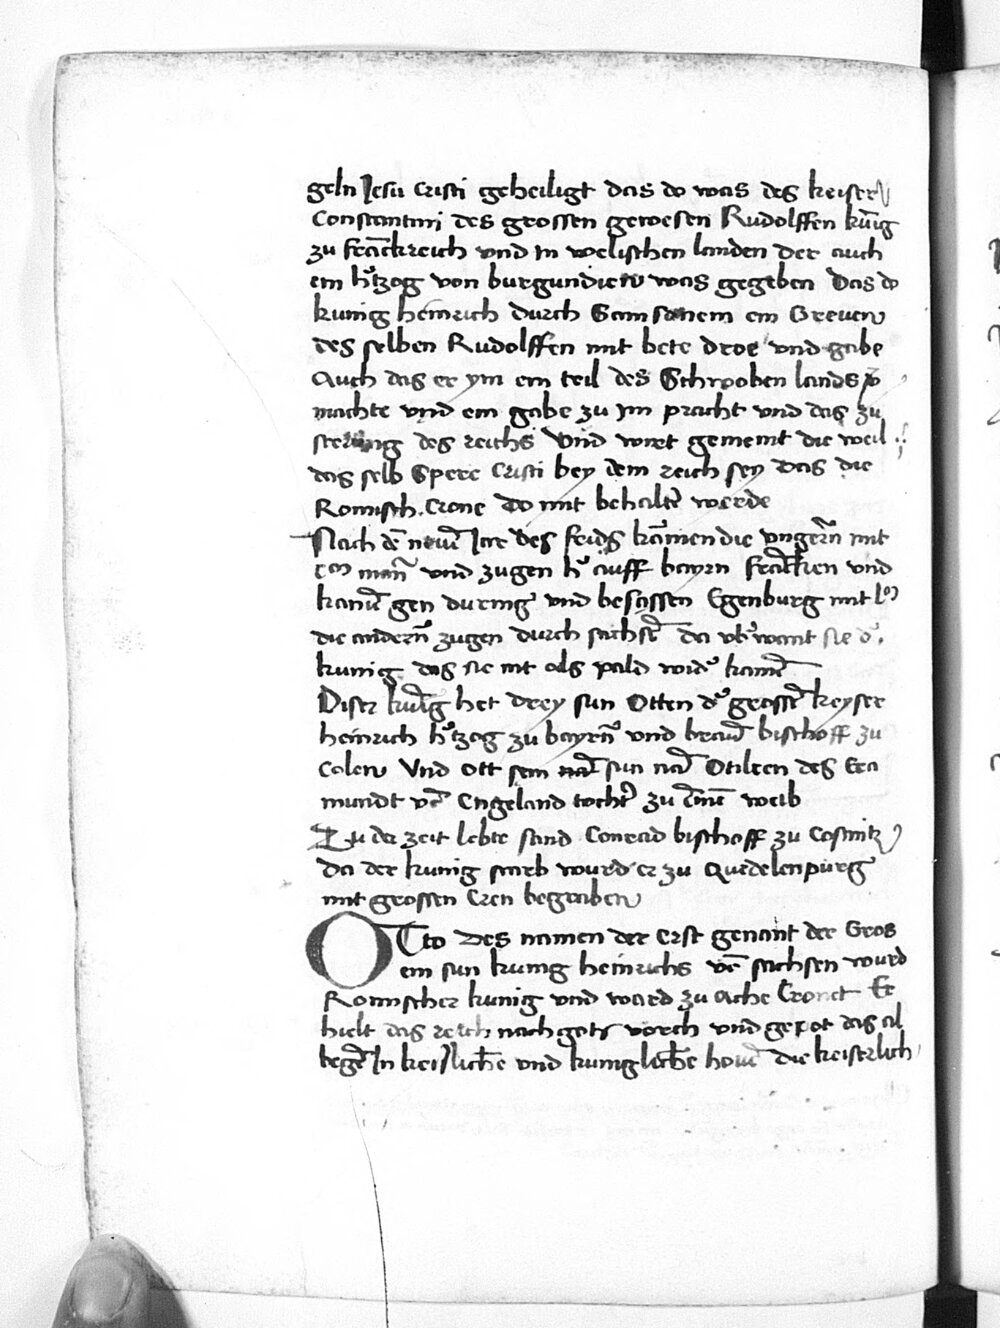 geln Jesu Cristi geheiligt das do was des keisers
Constantini des grossen gewesen Rudolffen kunig
zu franckreich vnd In welischen landen der auch
ein h'tzog von burgundien was gegeben Das do
kunig heinrich durch Samsonem ein Greuen
des selben Rudolffen mit bete droe vnd gabe
Auch das er ym ein teil des Schwoben lands
machte vnd ein gabe zu Im pracht vnd das zu
sterung des reichs Vnd wirt gemeint die weil
das selb Spere Cristi bey dem reich sey Das die
Romisch Crone Do mit behalten werde
Nach dē newn Jare des frids kāmen die vngern̄ mit
man̄ vnd zugen h' auff bayrn francken vnd
kamē gen during vnd besassen Egenburg mit
die andern̄ zugen durch sachsē da vb'want sie d'
kunig das sie nit als pald wid' kamē
Diser kunig het drey sun Otten d' grossē keyser
heinrich h'tzog zu bayrn̄ vnd braun bischoff zu
Colen Vnd ott sein sun nam Otilien des Eea
mundt vō Engeland tocht' zu einē weib
Zu der zeit lebte sand Conrad bischoff zu Costnitz
Do der kunig starb wurd er zu Quedelenpurg
mit grossen Eren begraben
OTto Des namen der Erst genant der Gros
ein sun kunig heinrichs vō sachsen wurd
Romischer kunig vnd ward zu Ache Cronet Er
hielt das reich nach gots vorch vnd gepot das al
wegē In keis'lichē vnd kuniglichē houē die keiserlich